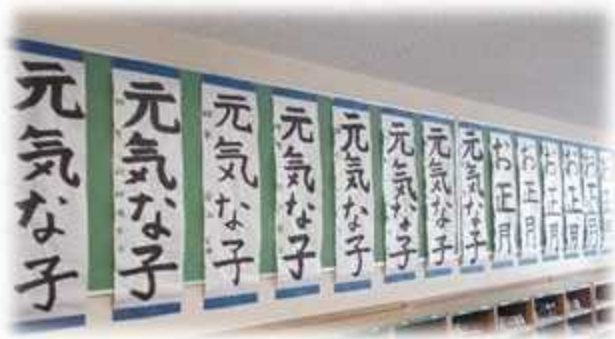 元気な子
元気な子
元気な子
元気な子
元気な子
元気な子
元気な子
元気な子
お正月
お正月
お正月
お正月
お正月